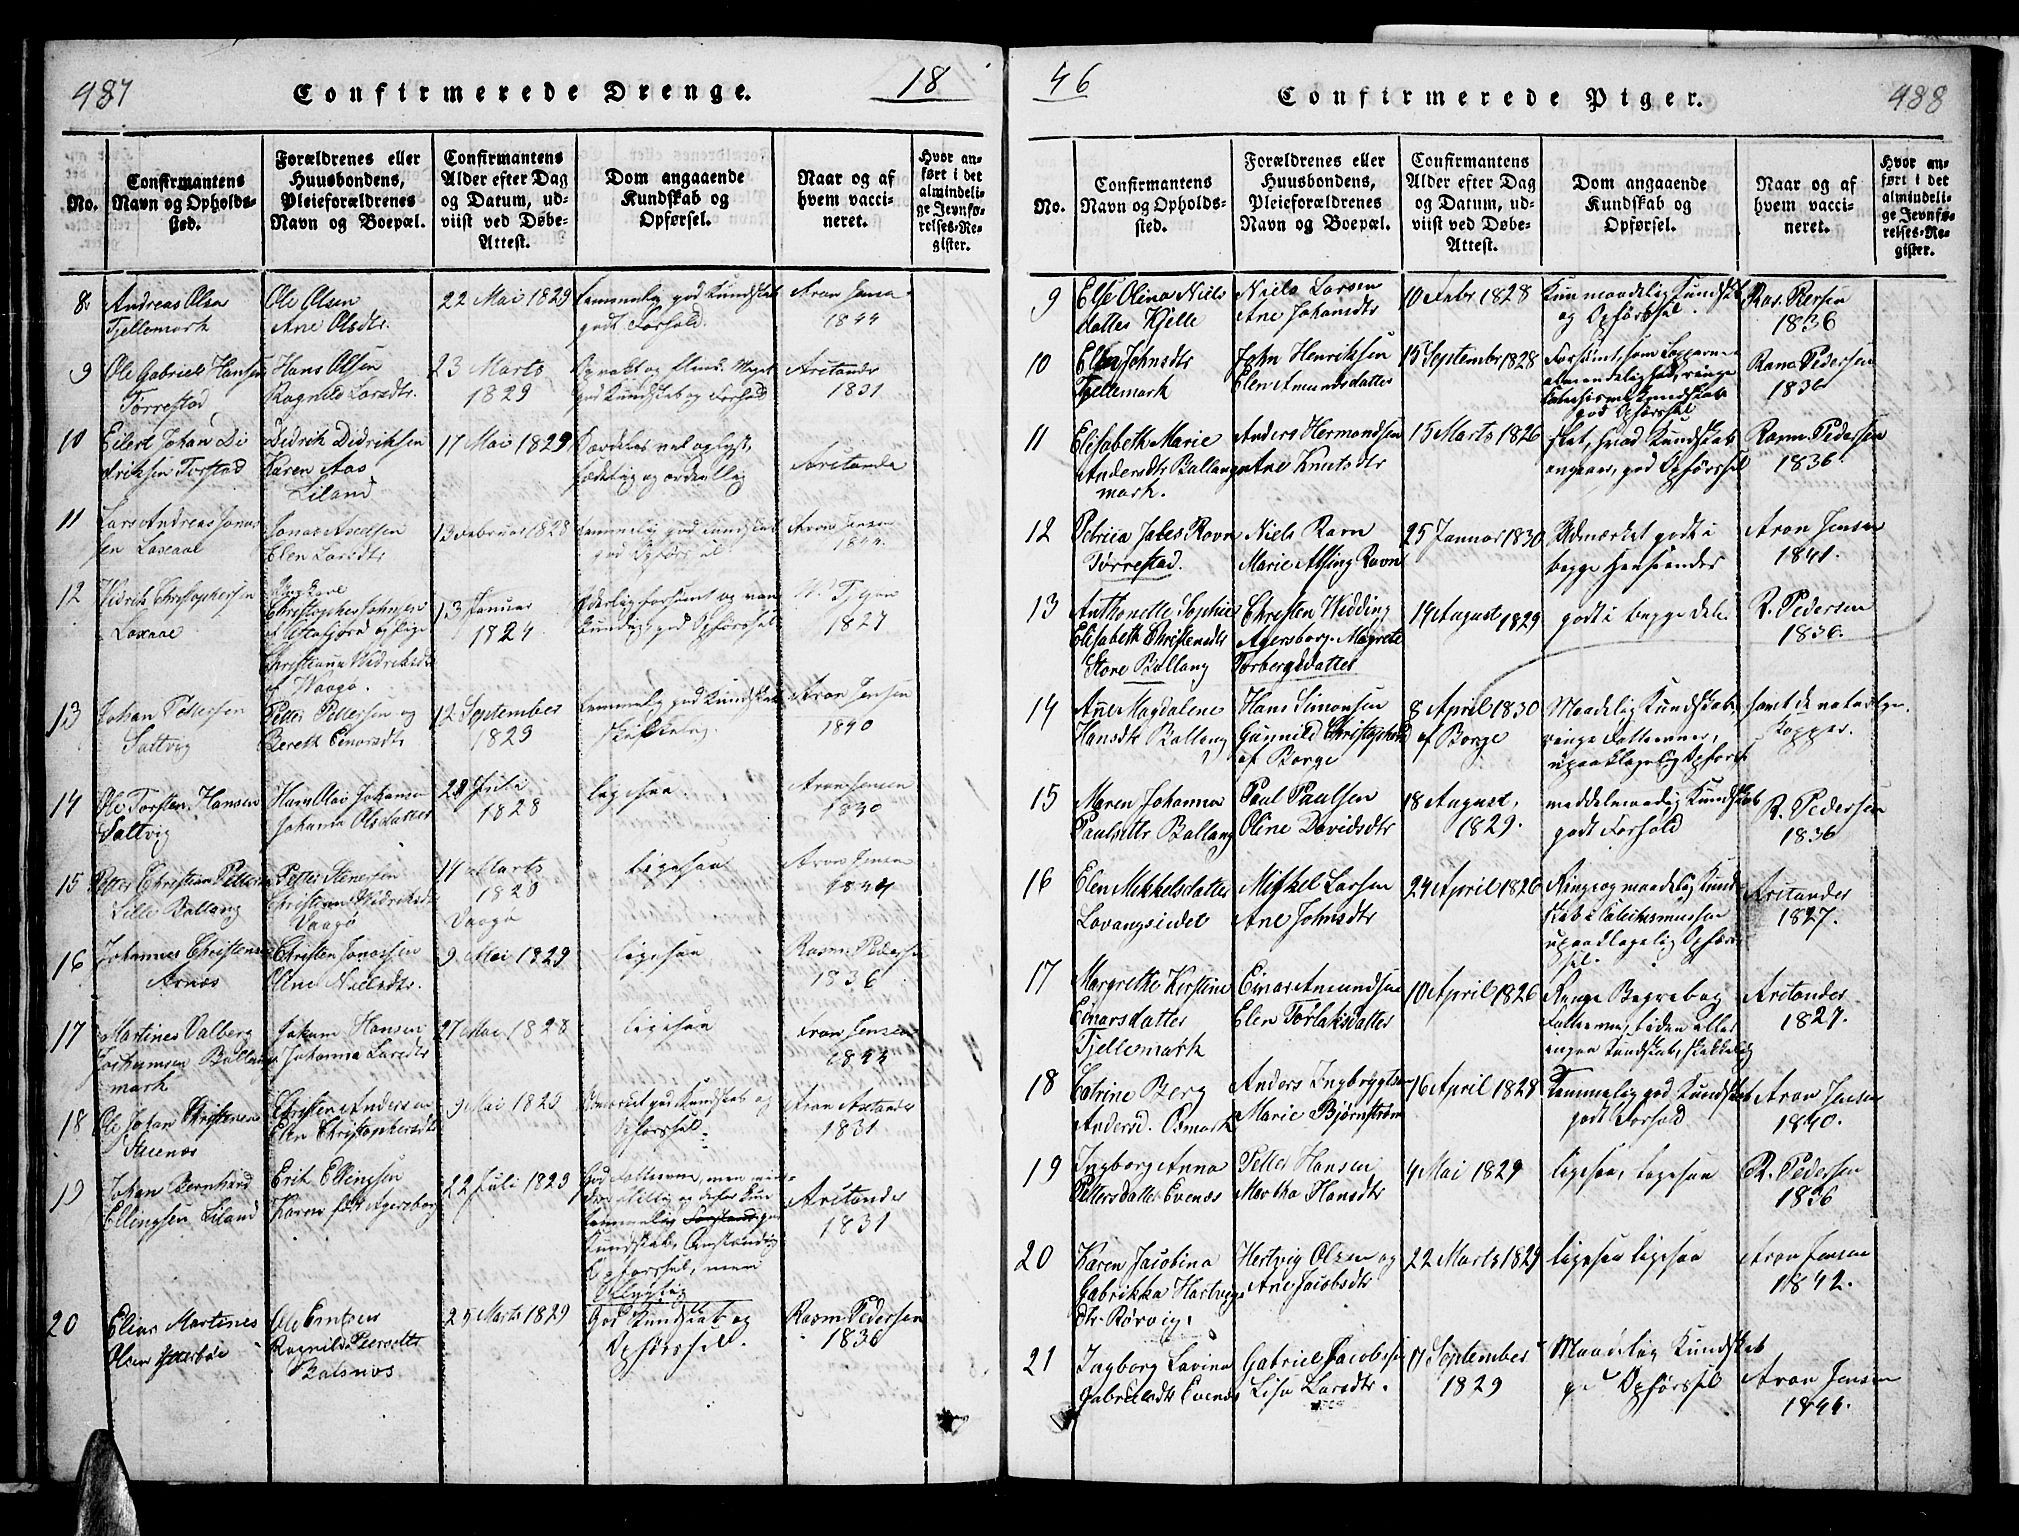 487
Confirmerede Drenge.
18
No.
Confirmantens
Navn og Opholds-
sted.
Forældrenes eller
Huusbondens,
Pleieforældrenes
Navn og Boepæl.
Confirmantens
Alder efter Dag
og Datum, ud-
viist ved Døbe-
Attest.
Dom angaaende
Kundskab og
Opførsel.
Naar og af
hvem vacci-
neret.
Hvor an-
ført i det
almindeli-
ge Jevnfø-
relses-Re-
gister.
8
Andreas Olsen
Tjellemark
Ole Olsen
Ane Olsdtr
22 Mai 1829
temmelig god Kundskab
godt Forhold.
Aron Jensen
1844
9
Ole Gabriel Hansen
Torrestad
Hans Olsen
Ragnild Larsdtr.
23 Marts
1829
god Kundskab og Forhold
Aristander
1831
10
Eilert Johan Di
driksen Torstad
Didrik Didriksen
Karen Aas
Liland
17 Mai 1829
Aristander
11
Lars Andreas Jonas
sen Laxaae
Jonas
Elen Larsdtr
13 Februar 1828
temmelig god Kundskab
god Opførsel
Aron Jensen
1844
12
Didrik Christophersen
Laxaae
Christopher Johnsen
af Ofotfjord og Pige
Christiane Didriksdtr
af Vaagø.
13 Januar
1824
god Opførsel
1827
13
Johan Pettersen
Saltvig
Petter Pettersen og
Bereth Einarsdtr
12 September
1829
temmelig god Kundskab
skikkelig.
Aron Jensen
1840
14
Ole Torsten Hansen
Saltvig
Hans Olai Johansen
Johanna Olsdatter
28 Juli
1828
ligesaa
Aron Jensen
1830
15
Petter Christian Pettersen
Lille Ballang
Petter Stenersen
Christiane Didriksdtr
Vaagø
14 Marts
1820
Vaagø
ligesaa
Aron Jensen
1844
16
Johannes Christensen
Arnes
Christen Jonassen
Oline Nielsdtr.
9 Mai 1829
ligesaa
Rasm Pedersen
1836
17
Martines Valberg
Jochumsen Ballang
mark
Jochum Hansen
Johanna Larsdtr
27 Mai 1828
ligesaa
Aron Jensen
1844
18
Ole Johan Christensen
Stenes
Christen Andersen
Elen Christophersdtr
9 Mai 1829
Kundskab og
Opførsel.
Aron Aristander
1831
19
Johan Bernhard
Ellingsen Liland
Erik Ellingsen
Karen født Agersborg
22 Juli 1829
God Fatteevne, men
temmelig Forstand god
Kundskab, Anstændig
Opførsel, men
Aristander
1831
20
Elias Martines
Olsen Ytterbøe
Ole Entzen
Ragnild Peersdtr
Balsnes
25 Marts 1829
God Kundskab og
Opførsel.
Rasm Pedersen
1836
46
Confirmerede Piger.
488
No.
Confirmantens
Navn og Opholds-
sted.
Forældrenes eller
Huusbondens,
Pleieforældrenes
Navn og Boepæl.
Confirmantens
Alder efter Dag
og Datum, ud-
viist ved Døbe-
Attest.
Dom angaaende
Kundskab og
Opførsel.
Naar og af
hvem vacci-
neret.
Hvor an-
ført i det
almindeli-
ge Jevnfø-
relses-Re-
gister.
9
Else Olina Niels
datter Kjelle
Niels Larsen
Ane Johansdtr
10 Febr 1828
Kun maadelig Kundskab
og Opførsel.
Ras. Persen
1836
10
Ellen Johnsdtr
Tjellemark
John Henriksen
Elen Amundsdatter
15 September 1828
Forsømt, som Lapperne
almindelighed, ringe
Catechismi Kundskab
god Opførsel
Rasm Pedersen
1836
11
Elisabeth Marie
Andersdtr Ballang
mark.
Anders Hermandsen
Ane Knutsdtr
15 Marts 1826
slet, hvad Kundskab
angaar, god Opførsel
Rasm Pedersen
1836
12
Petrica Jabes Ravn
Torrestad.
Niels Ravn
Marie Alsing Ravn
25 Januar 1830
Udmærket godt i
begge Henseender
Aron Jensen
1841.
13
Anthonette Sophie
Elisabeth Christensdtr
Store Ballang
Christen Widding
Agersborg. Magrete
Torbergsdatter
14 August 1829
godt i begge Dele
R. Pedersen
1836.
14
Anne Magdalene
Hansdtr Ballang
Hans Simonsen
Gunnild Christophersd
af Borge
8 April 1830
af Borge
Maadelig Kundskab,
ringe Fatteevner,
upaaklagelig Opførsel
havt de naturlige
Kopper.
15
Maren Johanna
Paulsdtr Ballang
Paul Paulsen
Oline Davidsdtr
18 August,
1829.
middelmaadig Kundskab
godt Forhold
R. Pedersen
1836
16
Elen Mikkelsdatter
Lavangseidet
Mikkel Larsen
Ane Johnsdtr
24 April 1826
Ringe og maadelig Kund
skab i Catechismussen
upaaklagelig Opfør
sel.
Aristander
1827.
17
Margrethe Kirstine
Einarsdatter
Tjellemark
Einar Amundsen
Elen Torlaksdatter
10 April 1826
Ringe Begreb og
Fatteevne, liden eller
ingen Kundskab, skikkelig
Aristander
1827.
18
Catrine Berg
Andersd. Osmark
Anders Ingbrygtsen
Marie Bjørnstrøm
16 April 1828
Temmelig god Kundskab
godt Forhold
Aron Jensen
1840.
19
Ingborg Anna
Pettersdatter Evenæs
Petter Hansen
Martha Hansdtr
4 Mai 1829
ligesaa, ligesaa
R. Pedersen
1836
20
Karen Jacobina
Gabrikka Hartvigs
dtr. Rørvig.
Hertvig Olsen og
Ane Jacobsdtr
22 Marts 1829
ligesaa ligesaa
Aron Jensen
1842.
21
Ingborg Lavina
Gabrielsdtr Evenæs
Gabriel Jacobsen
Lisa Larsdtr.
17 September
1829
Maadelig Kundskab
god Opførsel
Aron Jensen
1841.